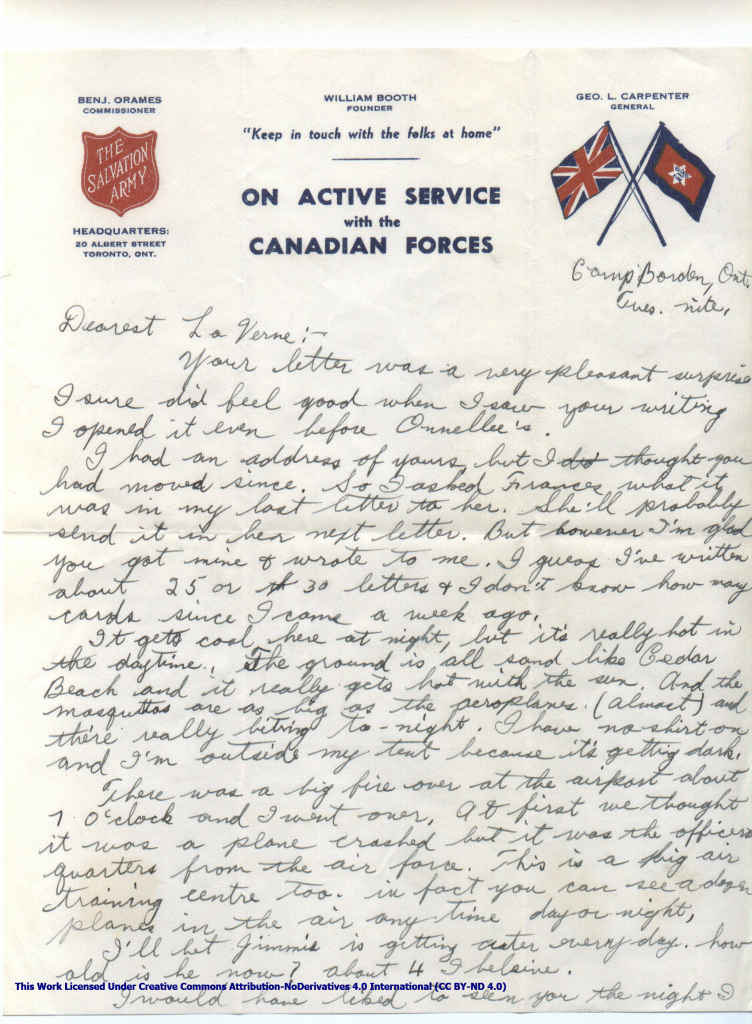 BENJ. ORAMES
COMMISSIONER
THE
SALVATION
ARMY
HEADQUARTERS:
20 ALBERT STREET
TORONTO, ONT.
WILLIAM BOOTH
FOUNDER
"Keep in touch with the folks at home"
ON ACTIVE SERVICE
with the
CANADIAN FORCES
GEO. L. CARPENTER
GENERAL
Camp Borden, Ont.
Tues. nite,
Dearest La Verne:-
Your letter was a very pleasant surprise
I sure did feel good when I saw your writing
I opened it even before Onnellee's.
I had an address of yours, but I thought you
had moved since. So I asked Frances what it
was in my last letter to her. She'll probably
send it in her next letter. But however I'm glad
you got mine & wrote to me. I guess I've written
about 25 or 30 letters & I don't know how may
cards since I came a week ago.
It gets cool here at night, but it's really hot in
the daytime. The ground is all sand like Cedar
Beach and it really gets hot with the sun. And the
mosquttos are as big as the aeroplanes. (almost) and
there really biting to-night. I have no shirt on
and I'm outside my tent because it's getting dark.
There was a big fire over at the airport about
7 O'clock and I went over. At first we thought
it was a plane crashed but it was the officers
quarters from the air force. This is a big air
training centre too. in fact you can see a dozen
planes in the air any time day or night,
I'll bet Jimmie is getting cuter every day. how
old is he now? about 4 I beleive.
I would have liked to seen you the night I
This Work Licensed Under Creative Commons Attribution-NoDerivatives 4.0 International (CC BY-ND 4.0)